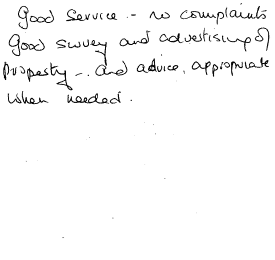 Good Service - no complaints
Good survey and advertising of
Property - and advice, appropriate
when needed.